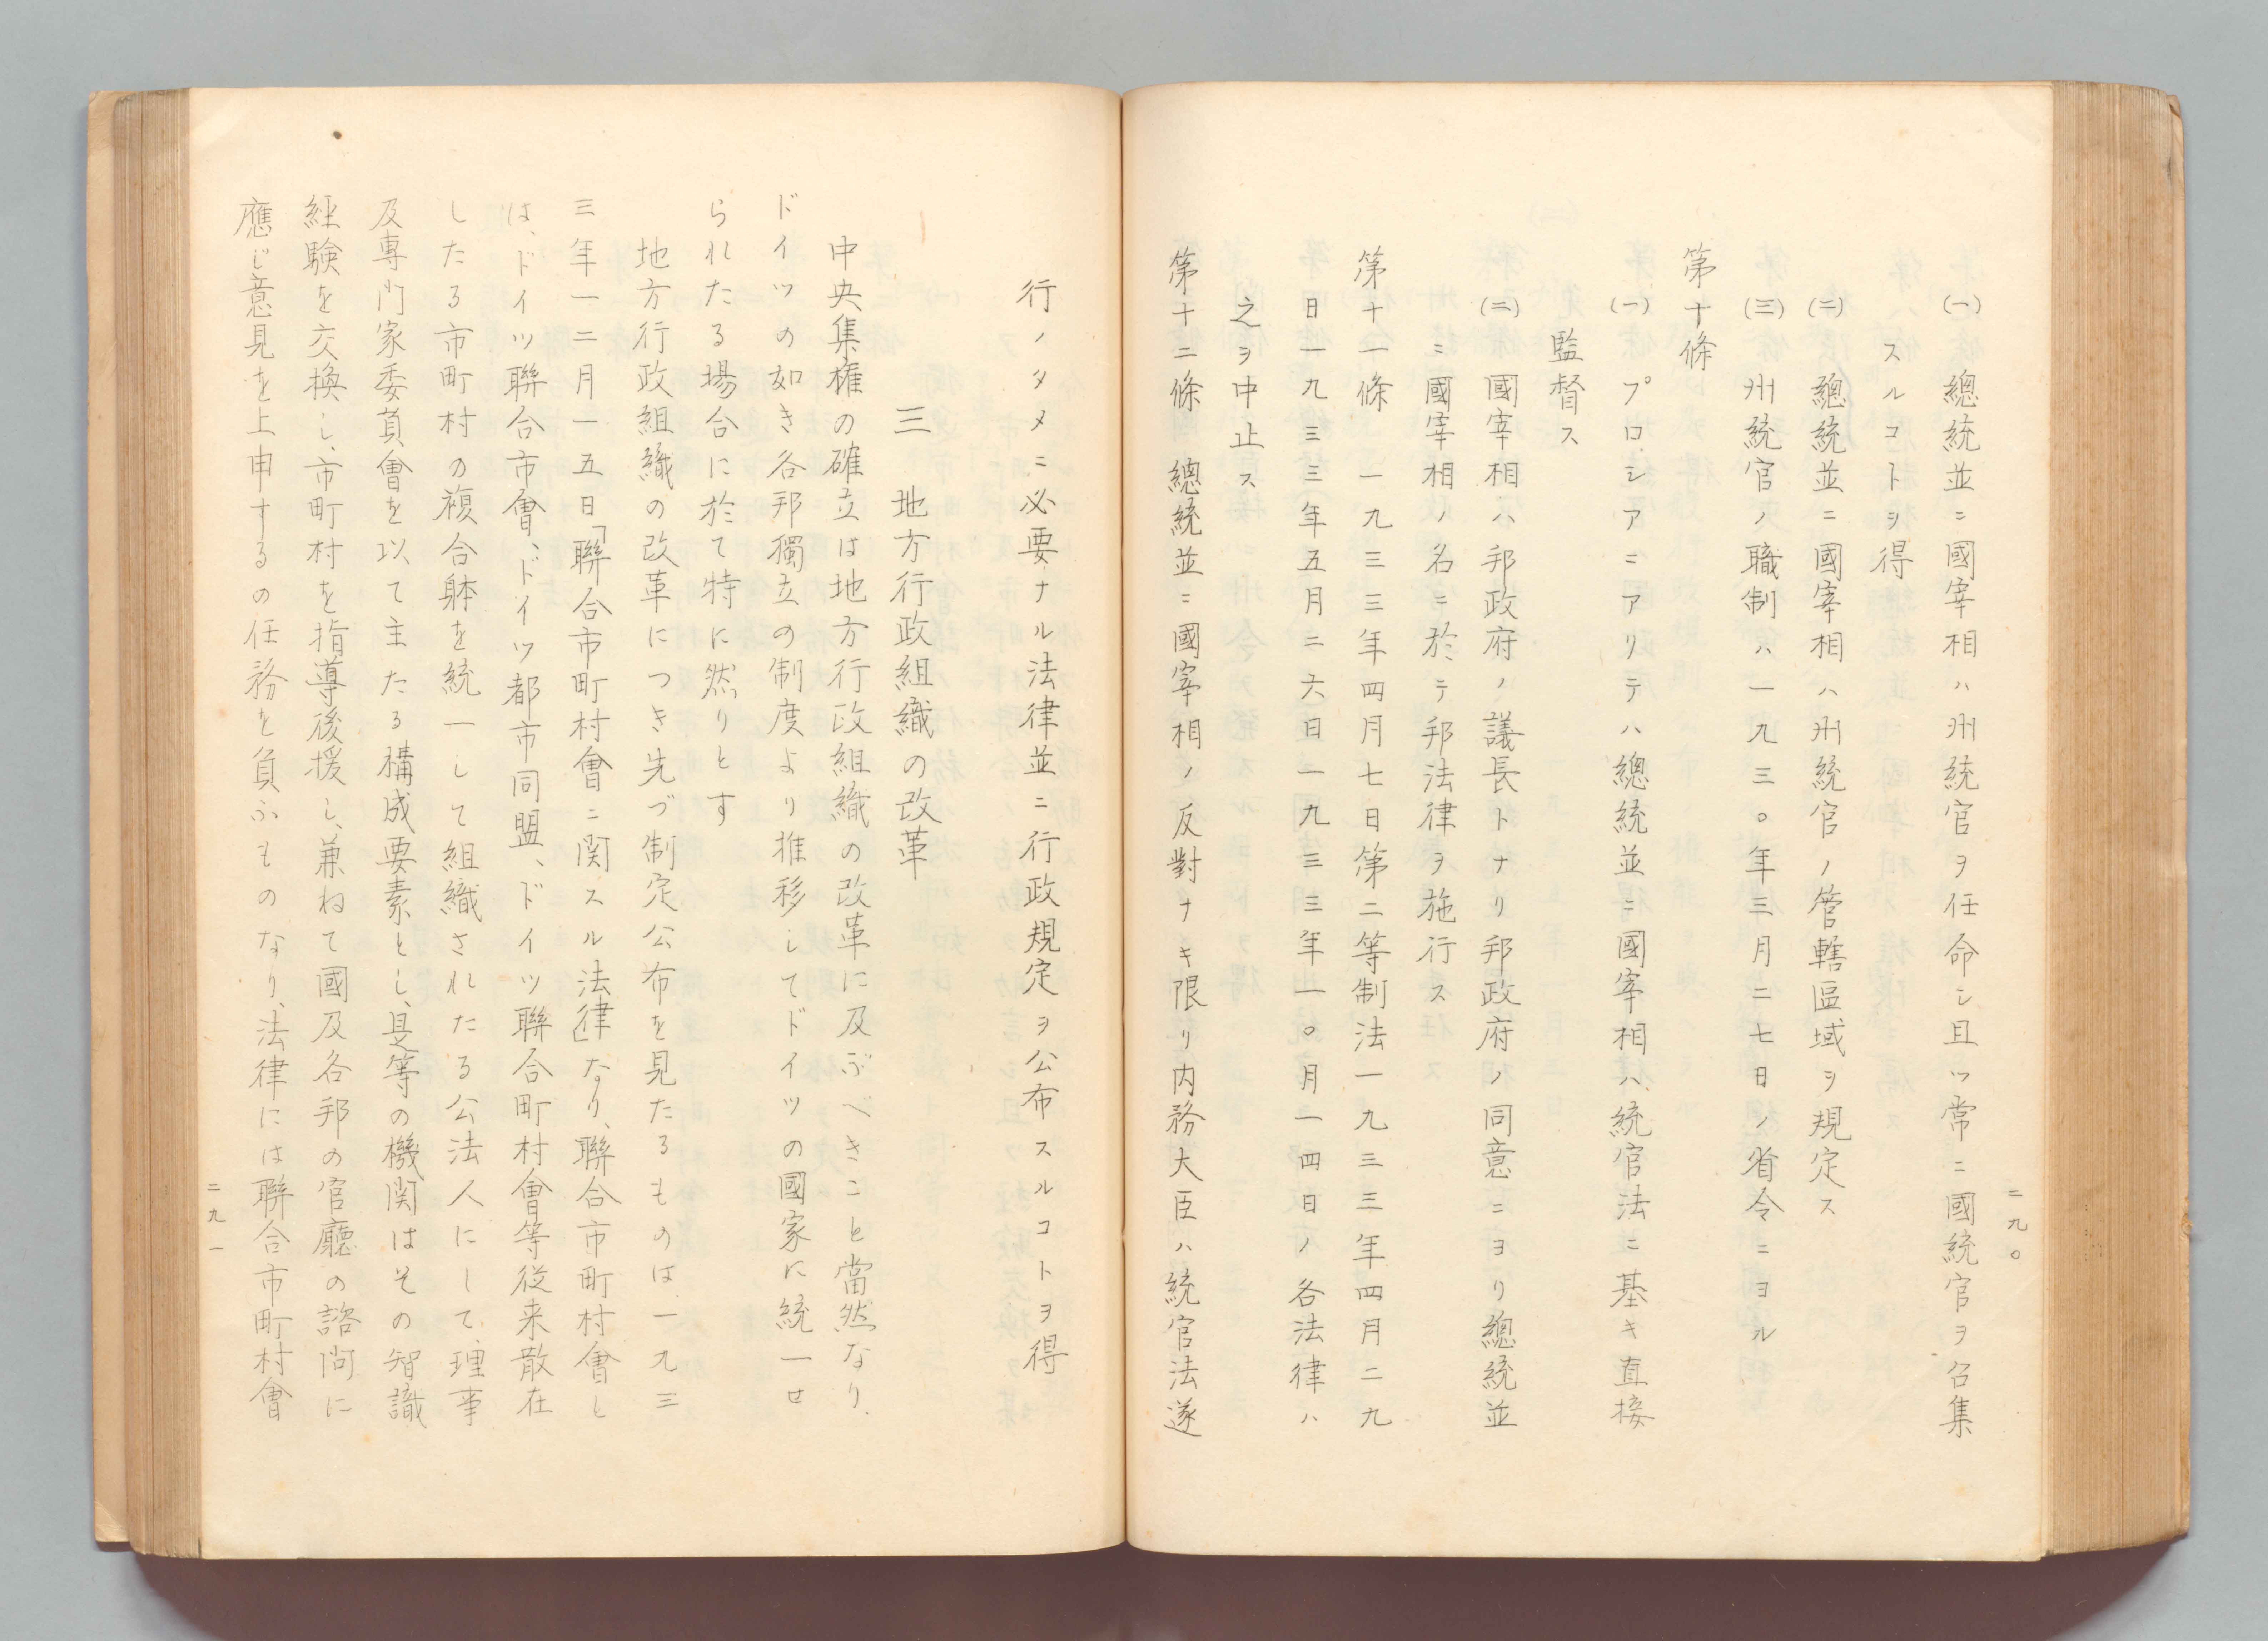 二九〇
㈠　總統並ニ國宰相ハ州統官ヲ任命シ且ツ常ニ國統官ヲ召集
スルコトヲ得
㈡　總統並ニ國宰相ハ州統官ノ管轄區域ヲ規定ス
㈢　州統官ノ職制ハ一九三〇年三月二七日ノ省令ニヨル
第十條
㈠　プロシアニアリテハ總統並ニ國宰相ハ統官法ニ基キ直接
監督ス
㈡　國宰相ハ邦政府ノ議長トナリ邦政府ノ同意ニヨリ總統並
ニ國宰相ノ名ニ於テ邦法律ヲ施行ス
第十一條　一九三三年四月七日第二等制法一九三三年四月二九
日一九三三年五月二六日一九三三年一〇月一四日ノ各法律ハ
之ヲ中止ス
第十二條　總統並ニ國宰相ノ反對ナキ限リ内務大臣ハ統官法遂
行ノタメニ必要ナル法律並ニ行政規定ヲ公布スルコトヲ得
三　地方行政組織の改革
中央集権の確立は地方行政組織の改革に及ぶべきこと當然なり、
ドイツの如き各邦獨立の制度より推移してドイツの國家に統一せ
られたる場合に於て特に然りとす
地方行政組織の改革につき先づ制定公布を見たるものは、一九三
三年一二月一五日「聯合市町村會ニ関スル法律」なり、聯合市町村會と
は、ドイツ聯合市會、ドイツ都市同盟、ドイツ聯合町村會等從来散在
したる市町村の複合躰を統一して組織されたる公法人にして、理事
及專門家委員會を以て主たる構成要素とし、是等の機関はその智識
経験を交換し、市町村を指導後援し、兼ねて國及各邦の官廳の諮問に
應じ意見を上申するの任務を負ふものなり、法律には聯合市町村會
二九一